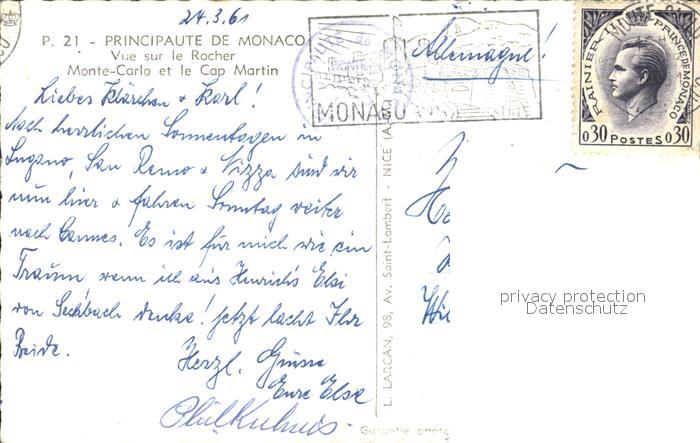 24.3.61
P. 21 - PRINCIPAUTE DE MONACO
Vue sur le Rocher
Monte-Carlo et le Cap Martin
Allemagne!
MONACO
RAINIER III PRINCE DE MONACO
0,30 POSTES 0,30
Liebes Klärchen + Karl!
Nach herrlichen Sonnentagen in
Lugano, San Remo + Nizza sind wir
nun hier + fahren Sonntag weiter
nach Cannes. Es ist für mich wie ein
Traum, wenn ich ans Heinrichs Elsi
von Seckbach denke! Jetzt lacht Ihr
Beide.
Herzl. Grüsse
Eure Else
L. LARCAN, 98, Av. Saint-Lambert - NICE (A.
Garantie photo
privacy protection
Datenschutz